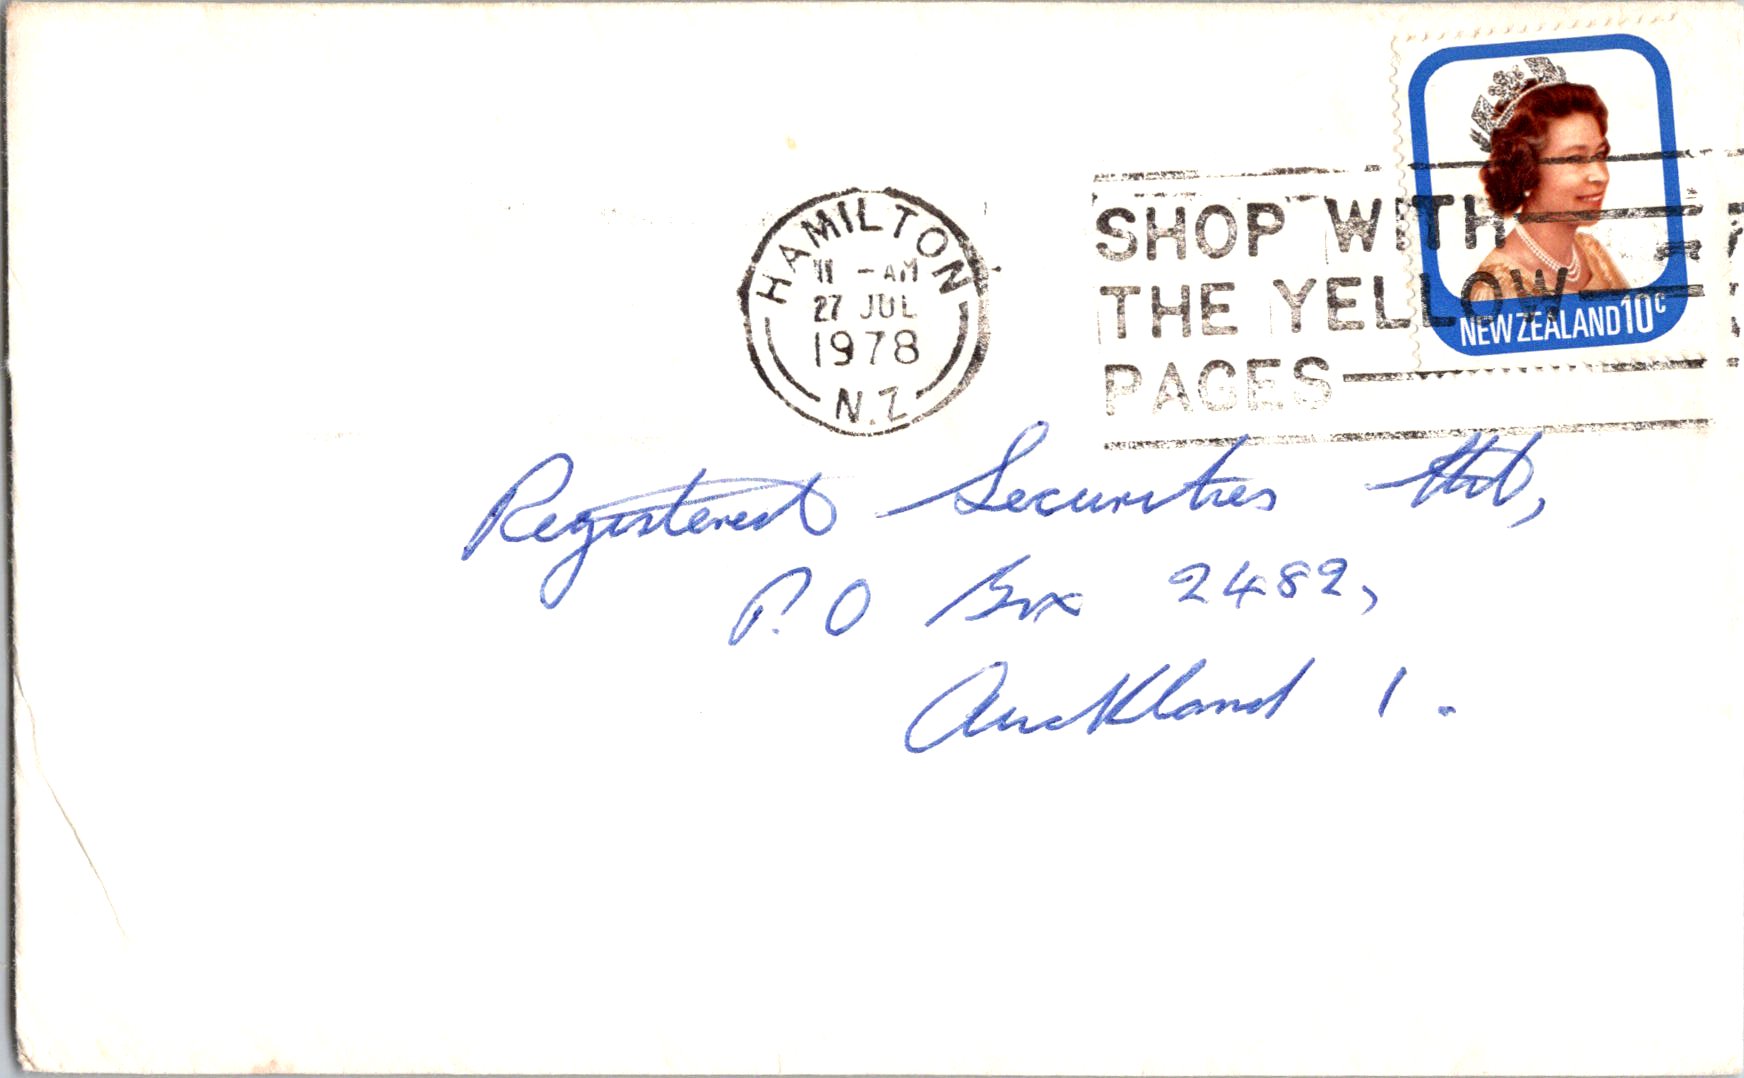 HAMILTON
11 -AM
27 JUL
1978
N.Z
SHOP WITH
THE YELLOW
PAGES
NEW ZEALAND 10c
Registered Securities Ltd,
P.O Box 2482,
Auckland 1.